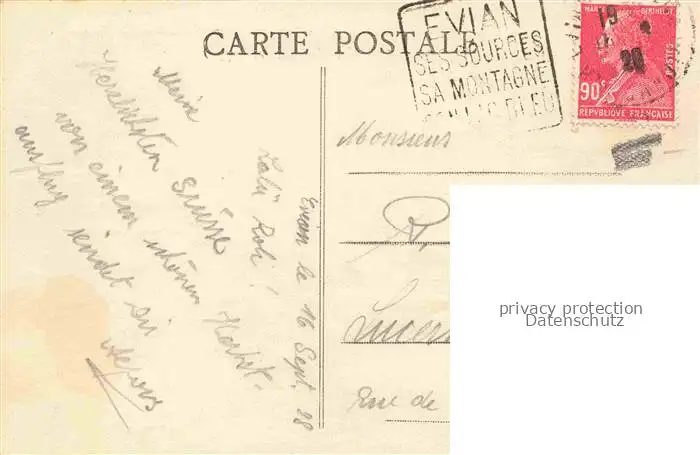 CARTE POSTALE
EVIAN
SES SOURCES
SA MONTAGNE
SON LAC BLEU
19
28
MARCELIN BERTHELOT
POSTES
90c
REPVBLIQVE FRANÇAISE
Evian le 16 Sept. 28
Salü Robi!
Mein
Herzlichsten Grüsse
von einem schönen Herbst-
ausflug sendet dir
Monsieur
R.
Luzern
Rue de
privacy protection
Datenschutz